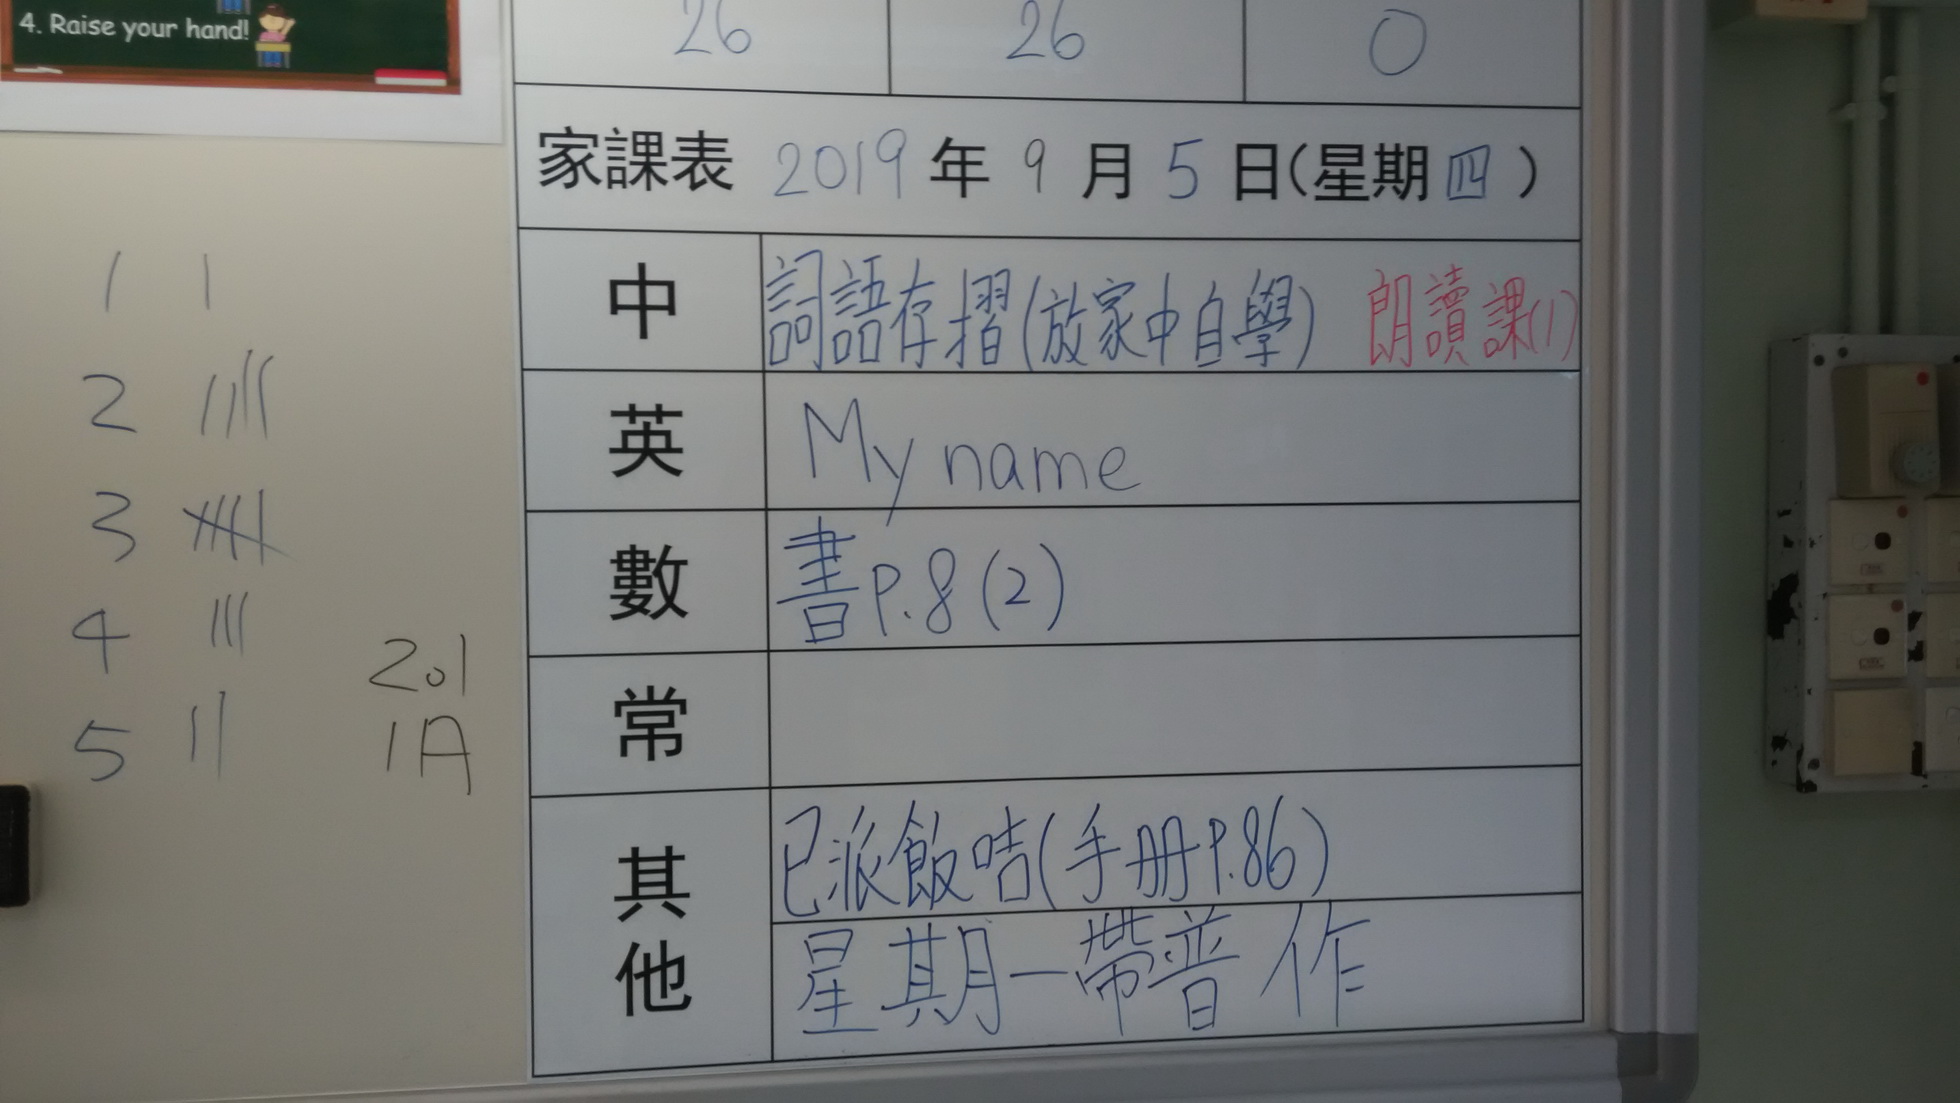 4. Raise your hand!
26 26 0
家課表 2019年9月5日(星期四)
中 詞語存摺(放家中自學) 朗讀課(1)
英 My name
數 書P.8(2)
常
其他 已派飯咭(手册P.86)
星期一帶普作
1
2
3
4
5
201
1A